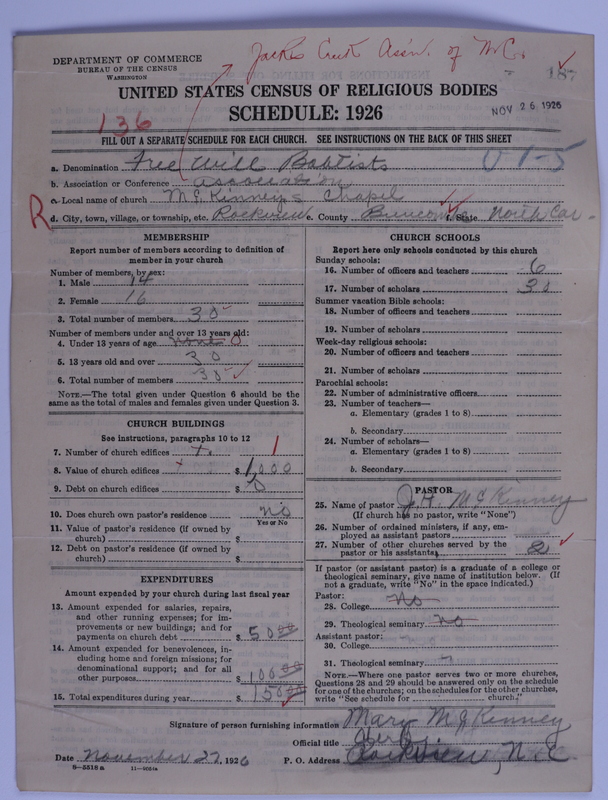 Jacks Creek Ass'n. of N.C.
DEPARTMENT OF COMMERCE
BUREAU OF THE CENSUS
WASHINGTON
187
UNITED STATES CENSUS OF RELIGIOUS BODIES
NOV 26 1926
SCHEDULE: 1926
136
FILL OUT A SEPARATE SCHEDULE FOR EACH CHURCH. SEE INSTRUCTIONS ON THE BACK OF THIS SHEET
a. Denomination Free Will Baptists
b. Association or Conference association
c. Local name of church McKinneys Chapil
R d. City, town, village, or township, etc. Rockview e. County Buncombe f. State North Car-
MEMBERSHIP
Report number of members according to definition of
member in your church
Number of members, by sex:
1. Male 14
2. Female 16
3. Total number of members 30
Number of members under and over 13 years old:
4. Under 13 years of age none 0
5. 13 years old and over 30
6. Total number of members 30
NOTE.—The total given under Question 6 should be
same as the total of males and females given under Question 3.
CHURCH BUILDINGS
See instructions, paragraphs 10 to 12
7. Number of church edifices 1
8. Value of church edifices $ 1,000
9. Debt on church edifices $ 0
10. Does church own pastor's residence no
Yes or No
11. Value of pastor's residence (if owned by
church) $
12. Debt on pastor's residence (if owned by
church) $
EXPENDITURES
Amount expended by your church during last fiscal year
13. Amount expended for salaries, repairs,
and other running expenses; for im-
provements or new buildings; and for
payments on church debt $ 50 00
14. Amount expended for benevolences, in-
cluding home and foreign missions; for
denominational support; and for all
other purposes $ 100 00
15. Total expenditures during year $ 150 00
CHURCH SCHOOLS
Report here only schools conducted by this church
Sunday schools:
16. Number of officers and teachers 6
17. Number of scholars 30
Summer vacation Bible schools:
18. Number of officers and teachers
19. Number of scholars
Week-day religious schools:
20. Number of officers and teachers
21. Number of scholars
Parochial schools:
22. Number of administrative officers
23. Number of teachers—
a. Elementary (grades 1 to 8)
b. Secondary
24. Number of scholars—
a. Elementary (grades 1 to 8)
b. Secondary
PASTOR
25. Name of pastor J.H. McKinney
(If church has no pastor, write "None")
26. Number of ordained ministers, if any, em-
ployed as assistant pastors
27. Number of other churches served by the
pastor or his assistants 2
If pastor (or assistant pastor) is a graduate of a college or
theological seminary, give name of institution below. (If
not a graduate, write "No" in the space indicated.)
Pastor:
28. College no
29. Theological seminary no
Assistant pastor:
30. College
31. Theological seminary
NOTE.—Where one pastor serves two or more churches,
Questions 28 and 29 should be answered only on the schedule
for one of the churches; on the schedules for the other churches,
write "See schedule for church."
Signature of person furnishing information Mary McKinney
Official title
Date November 27, 1926 P. O. Address Rockview, N.C.
8—5518a 11—9054a